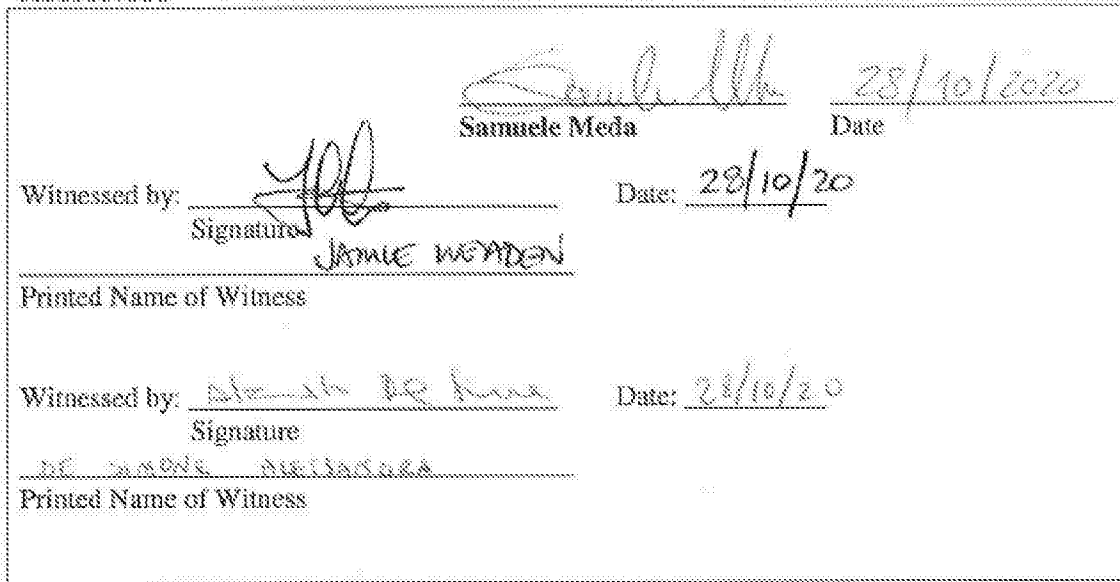 28/10/2020
Samuele Meda Date
Witnessed by: Date: 28/10/20
Signature
JAMIE WEADEN
Printed Name of Witness
Witnessed by: Date: 28/10/20
Signature
DE SIMONE ALESSANDRA
Printed Name of Witness